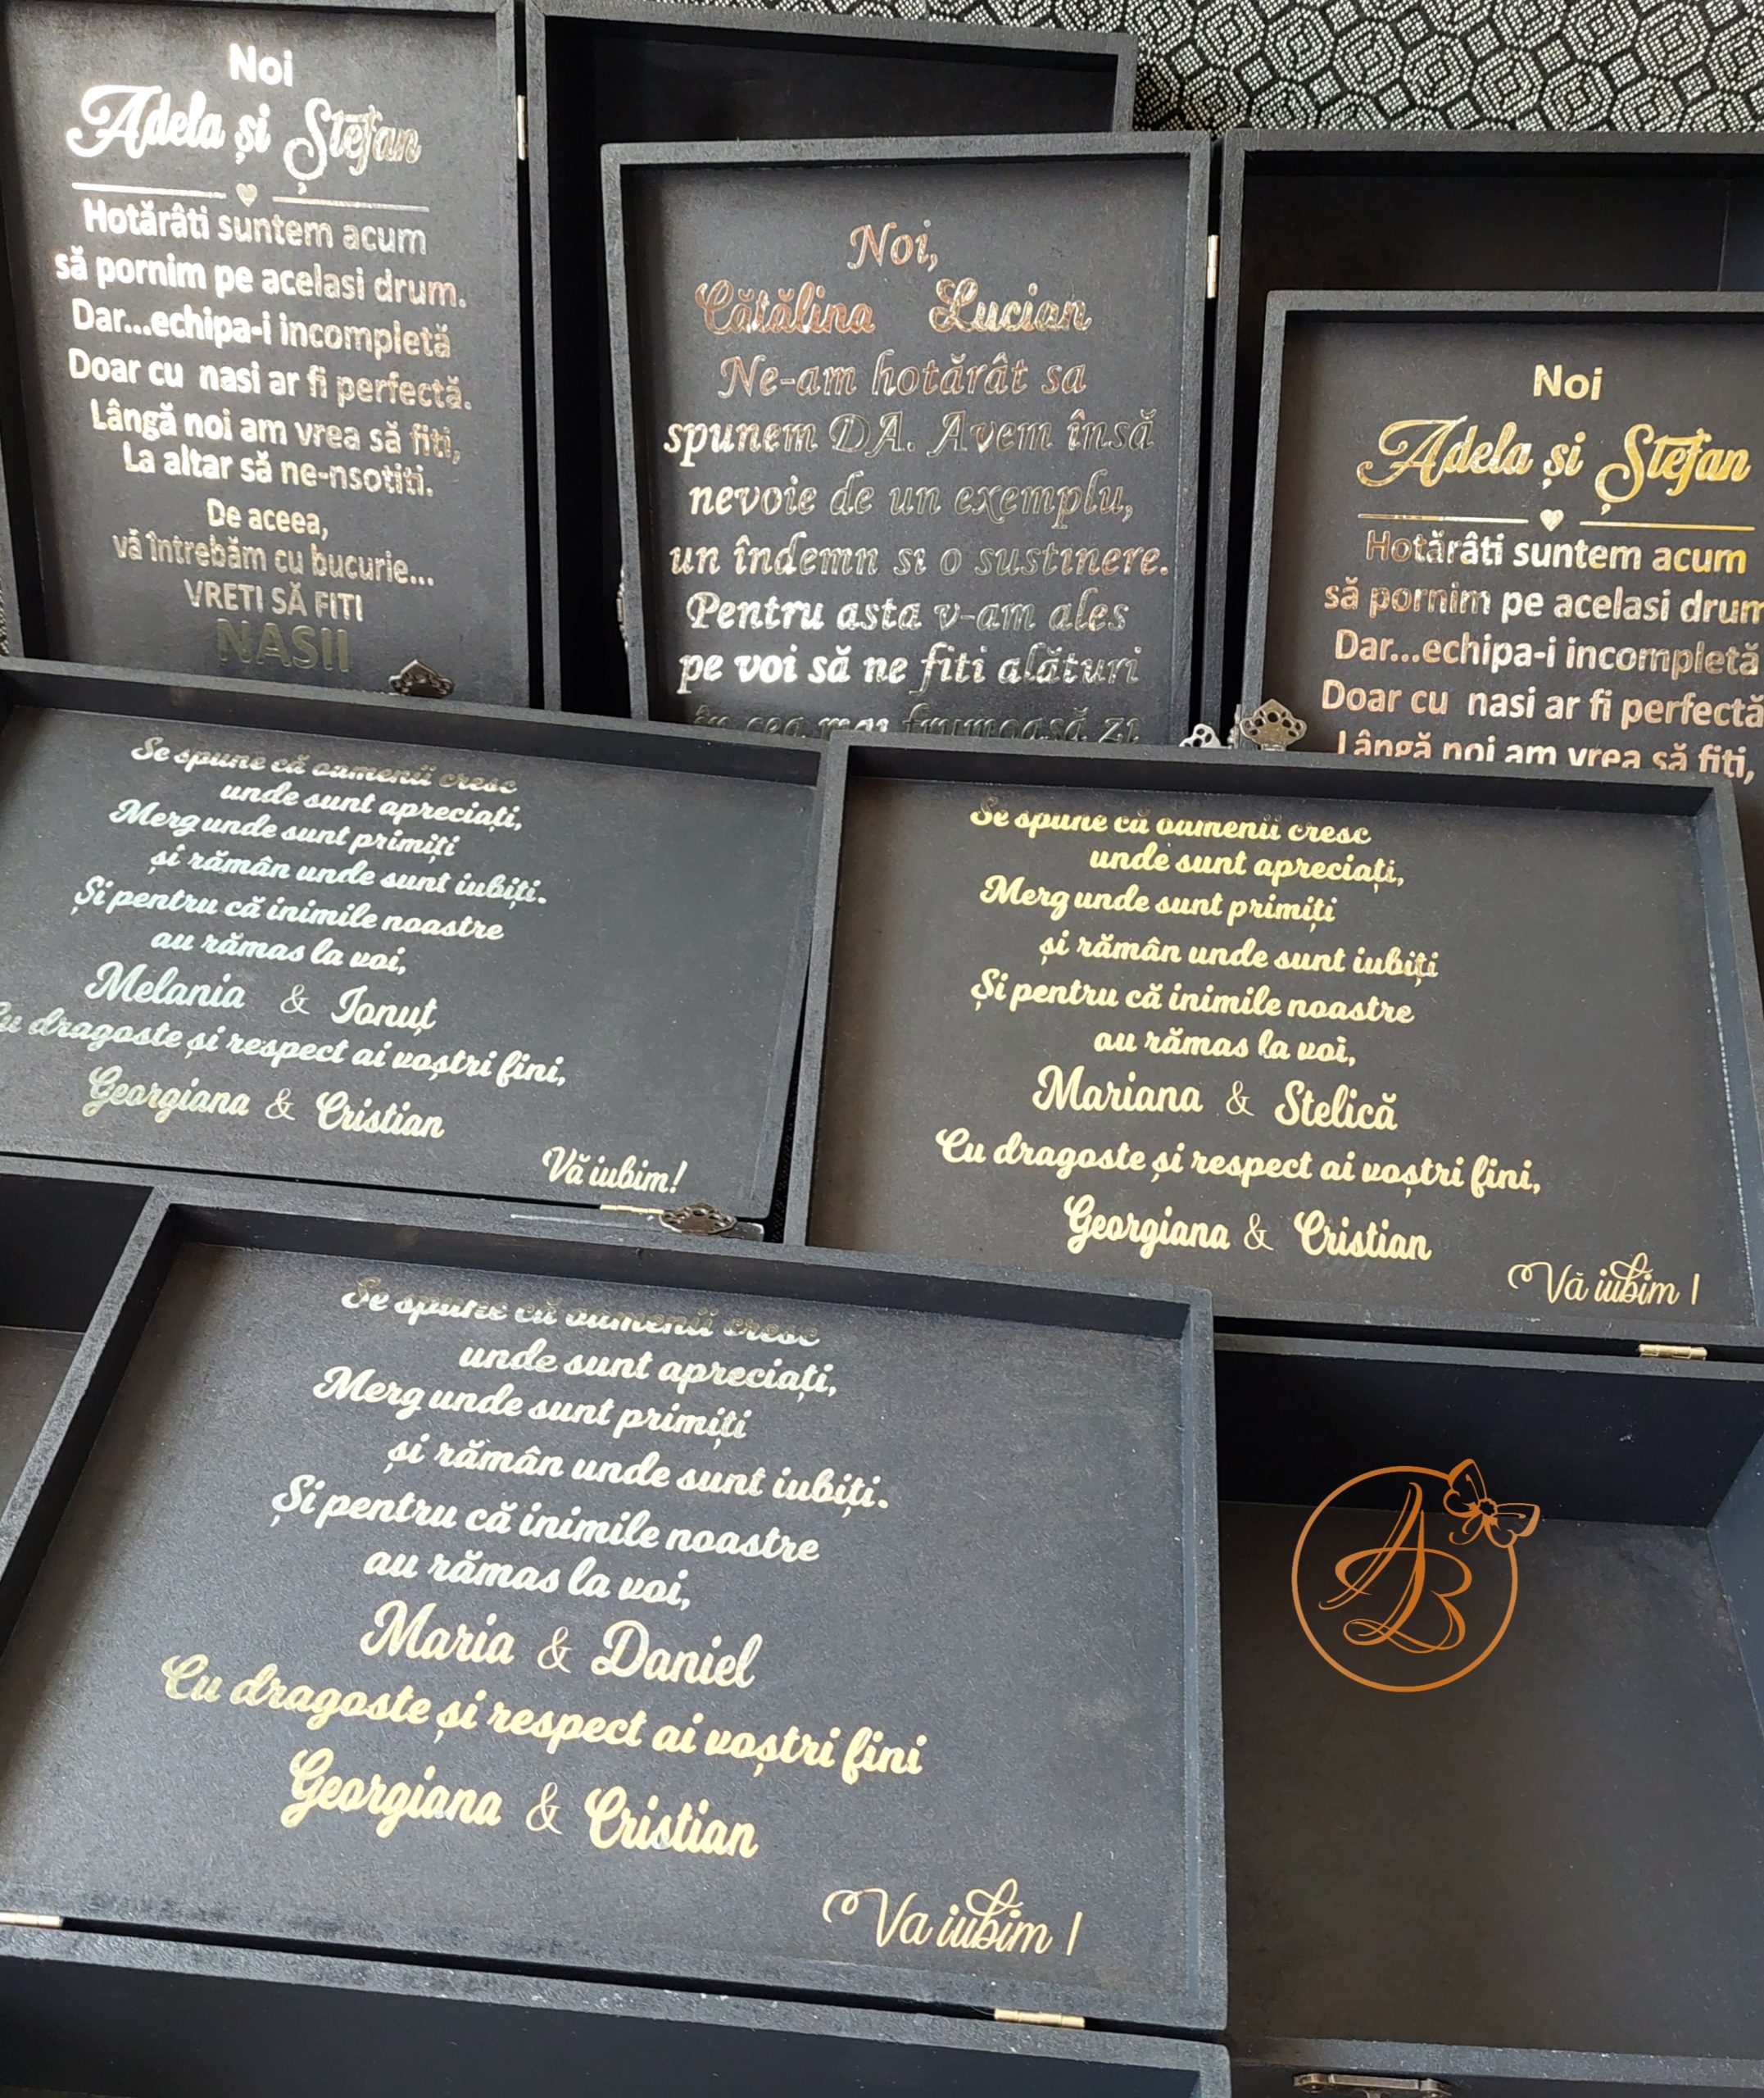 Noi
Adela și Ștefan
Hotărâti suntem acum
să pornim pe acelasi drum.
Dar...echipa-i incompletă
Doar cu nasi ar fi perfectă.
Lângă noi am vrea să fiti,
La altar să ne-nsotiti.
De aceea,
vă întrebăm cu bucurie...
VRETI SĂ FITI
NASII
Noi,
Cătălina Lucian
Ne-am hotărât sa
spunem DA. Avem însă
nevoie de un exemplu,
un îndemn si o sustinere.
Pentru asta v-am ales
pe voi să ne fiti alături
în cea mai frumoasă zi
Noi
Adela și Ștefan
Hotărâti suntem acum
să pornim pe acelasi drum
Dar...echipa-i incompletă
Doar cu nasi ar fi perfectă
Lângă noi am vrea să fiti,
Se spune că oamenii cresc
unde sunt apreciați,
Merg unde sunt primiți
și rămân unde sunt iubiți.
Și pentru că inimile noastre
au rămas la voi,
Melania & Ionuț
Cu dragoste și respect ai voștri fini,
Georgiana & Cristian
Vă iubim!
Se spune că oamenii cresc
unde sunt apreciați,
Merg unde sunt primiți
și rămân unde sunt iubiți
Și pentru că inimile noastre
au rămas la voi,
Mariana & Stelică
Cu dragoste și respect ai voștri fini,
Georgiana & Cristian
Vă iubim !
Se spune că oamenii cresc
unde sunt apreciați,
Merg unde sunt primiți
și rămân unde sunt iubiți.
Și pentru că inimile noastre
au rămas la voi,
Maria & Daniel
Cu dragoste și respect ai voștri fini
Georgiana & Cristian
Va iubim !
AB